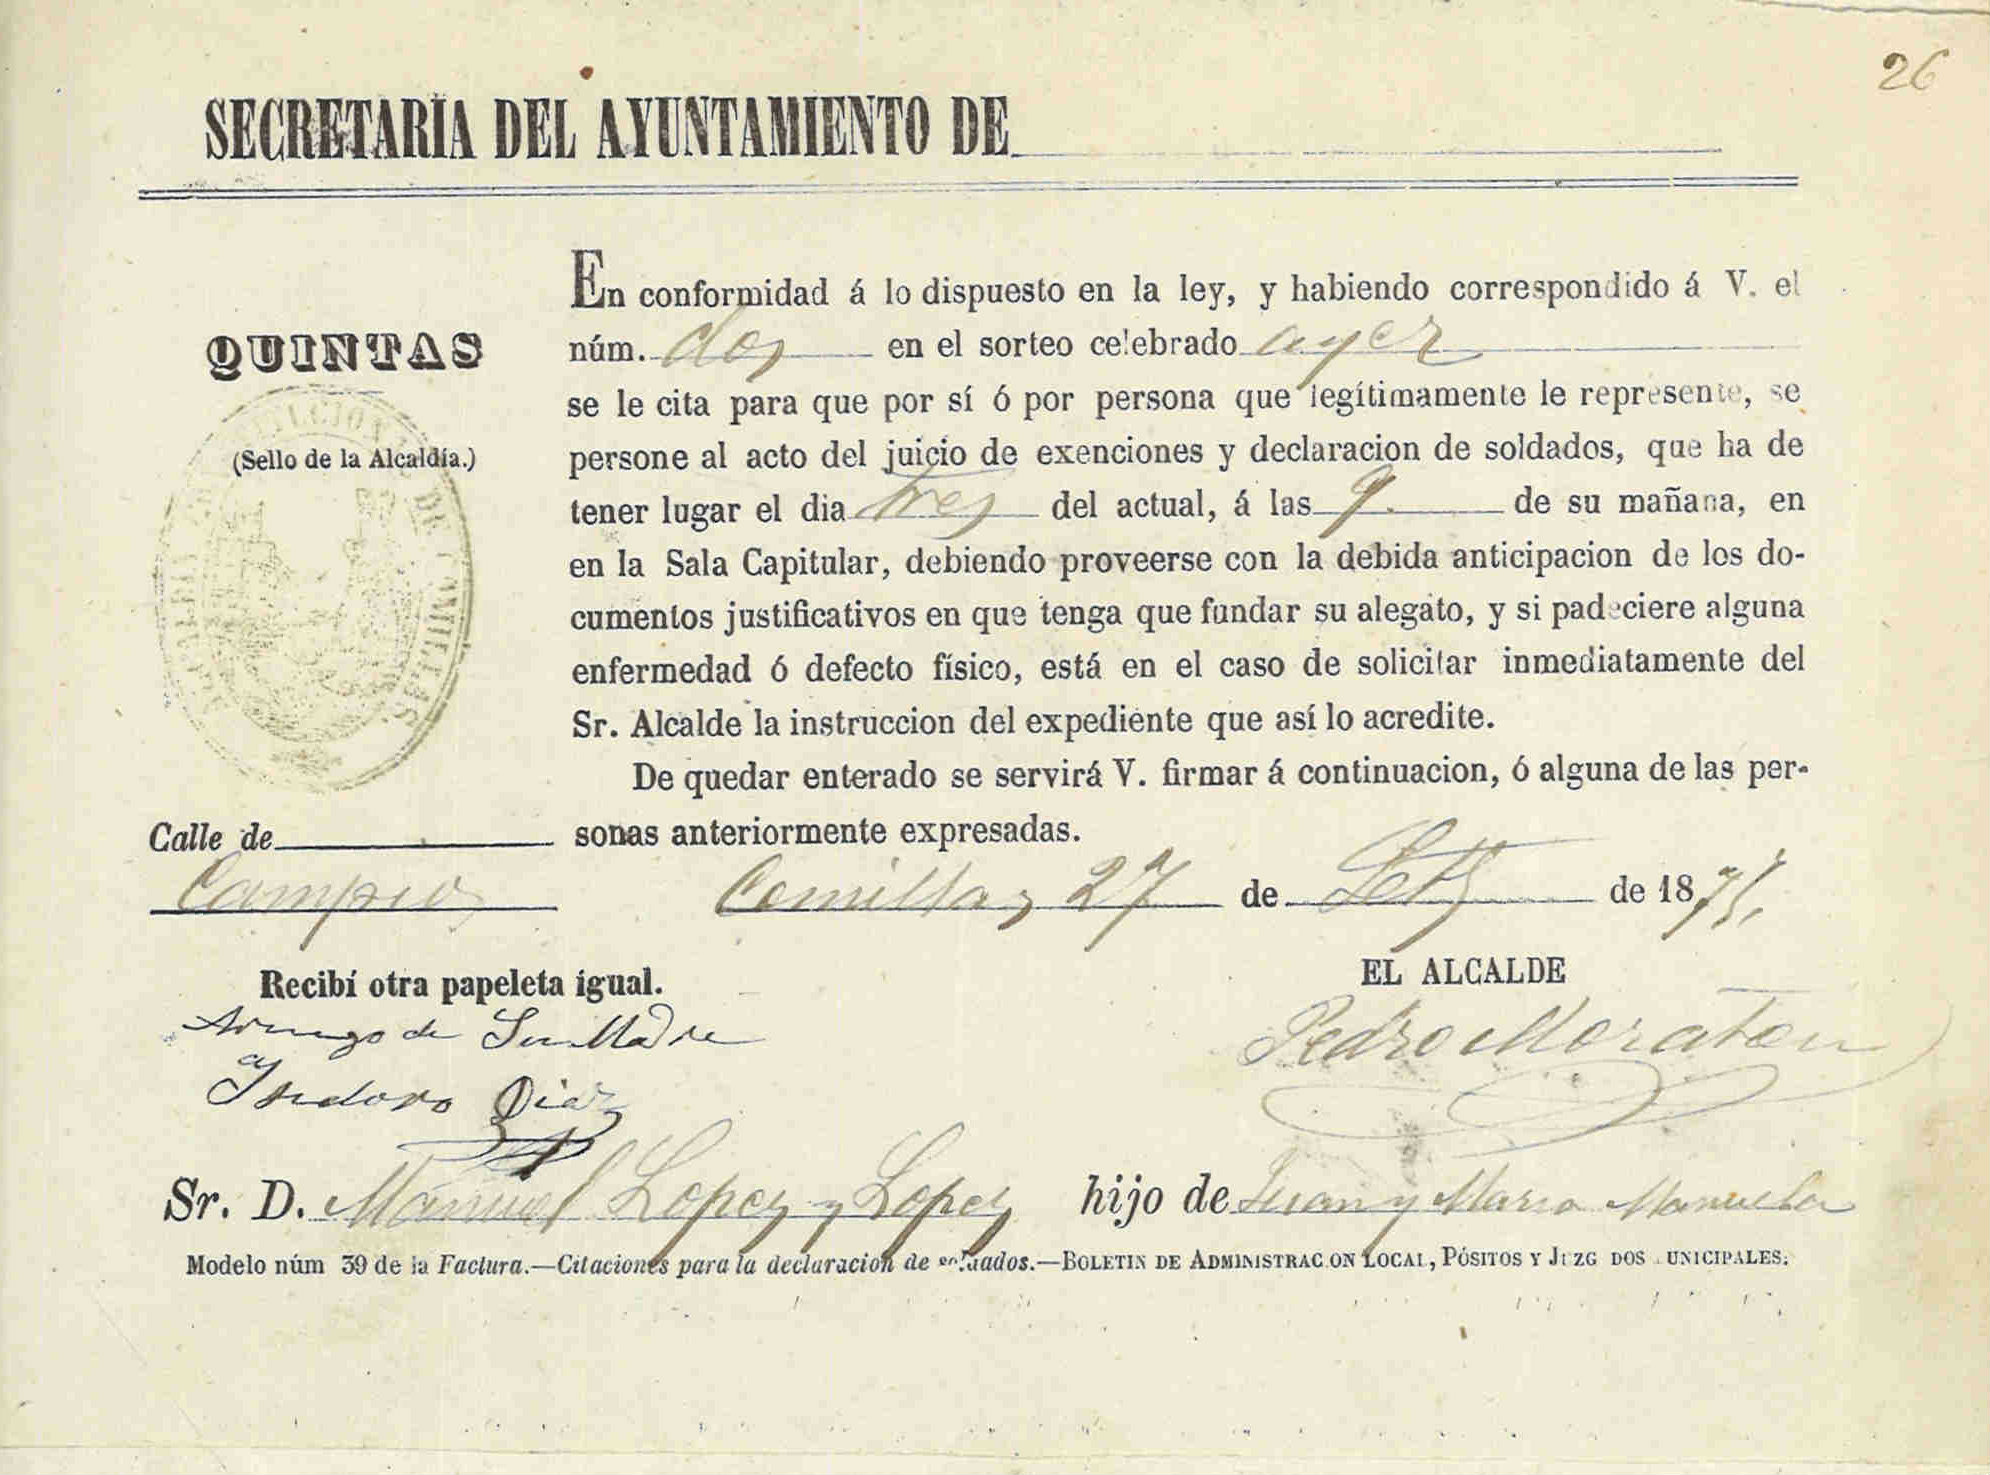 26
SECRETARÍA DEL AYUNTAMIENTO DE
QUINTAS
(Sello de la Alcaldía.)
En conformidad á lo dispuesto en la ley, y habiendo correspondido á V. el
núm. dos en el sorteo celebrado ayer
se le cita para que por sí ó por persona que legítimamente le represente, se
persone al acto del juicio de exenciones y declaracion de soldados, que ha de
tener lugar el dia tres del actual, á las 9. de su mañana, en
en la Sala Capitular, debiendo proveerse con la debida anticipacion de los do-
cumentos justificativos en que tenga que fundar su alegato, y si padeciere alguna
enfermedad ó defecto físico, está en el caso de solicitar inmediatamente del
Sr. Alcalde la instruccion del expediente que así lo acredite.
De quedar enterado se servirá V. firmar á continuacion, ó alguna de las per-
sonas anteriormente expresadas.
Calle de
Campios
Comillas 27 de de 1875,
Recibí otra papeleta igual.
EL ALCALDE
Arruego de Su Madre
Pedro Moraton
Ysidoro Diaz
Sr. D. Manuel Lopez y Lopez hijo de Juan y Maria Manuela
Modelo núm 39 de la Factura.—Citaciones para la declaracion de soldados.—BOLETIN DE ADMINISTRACION LOCAL, PÓSITOS Y JUZGADOS MUNICIPALES.